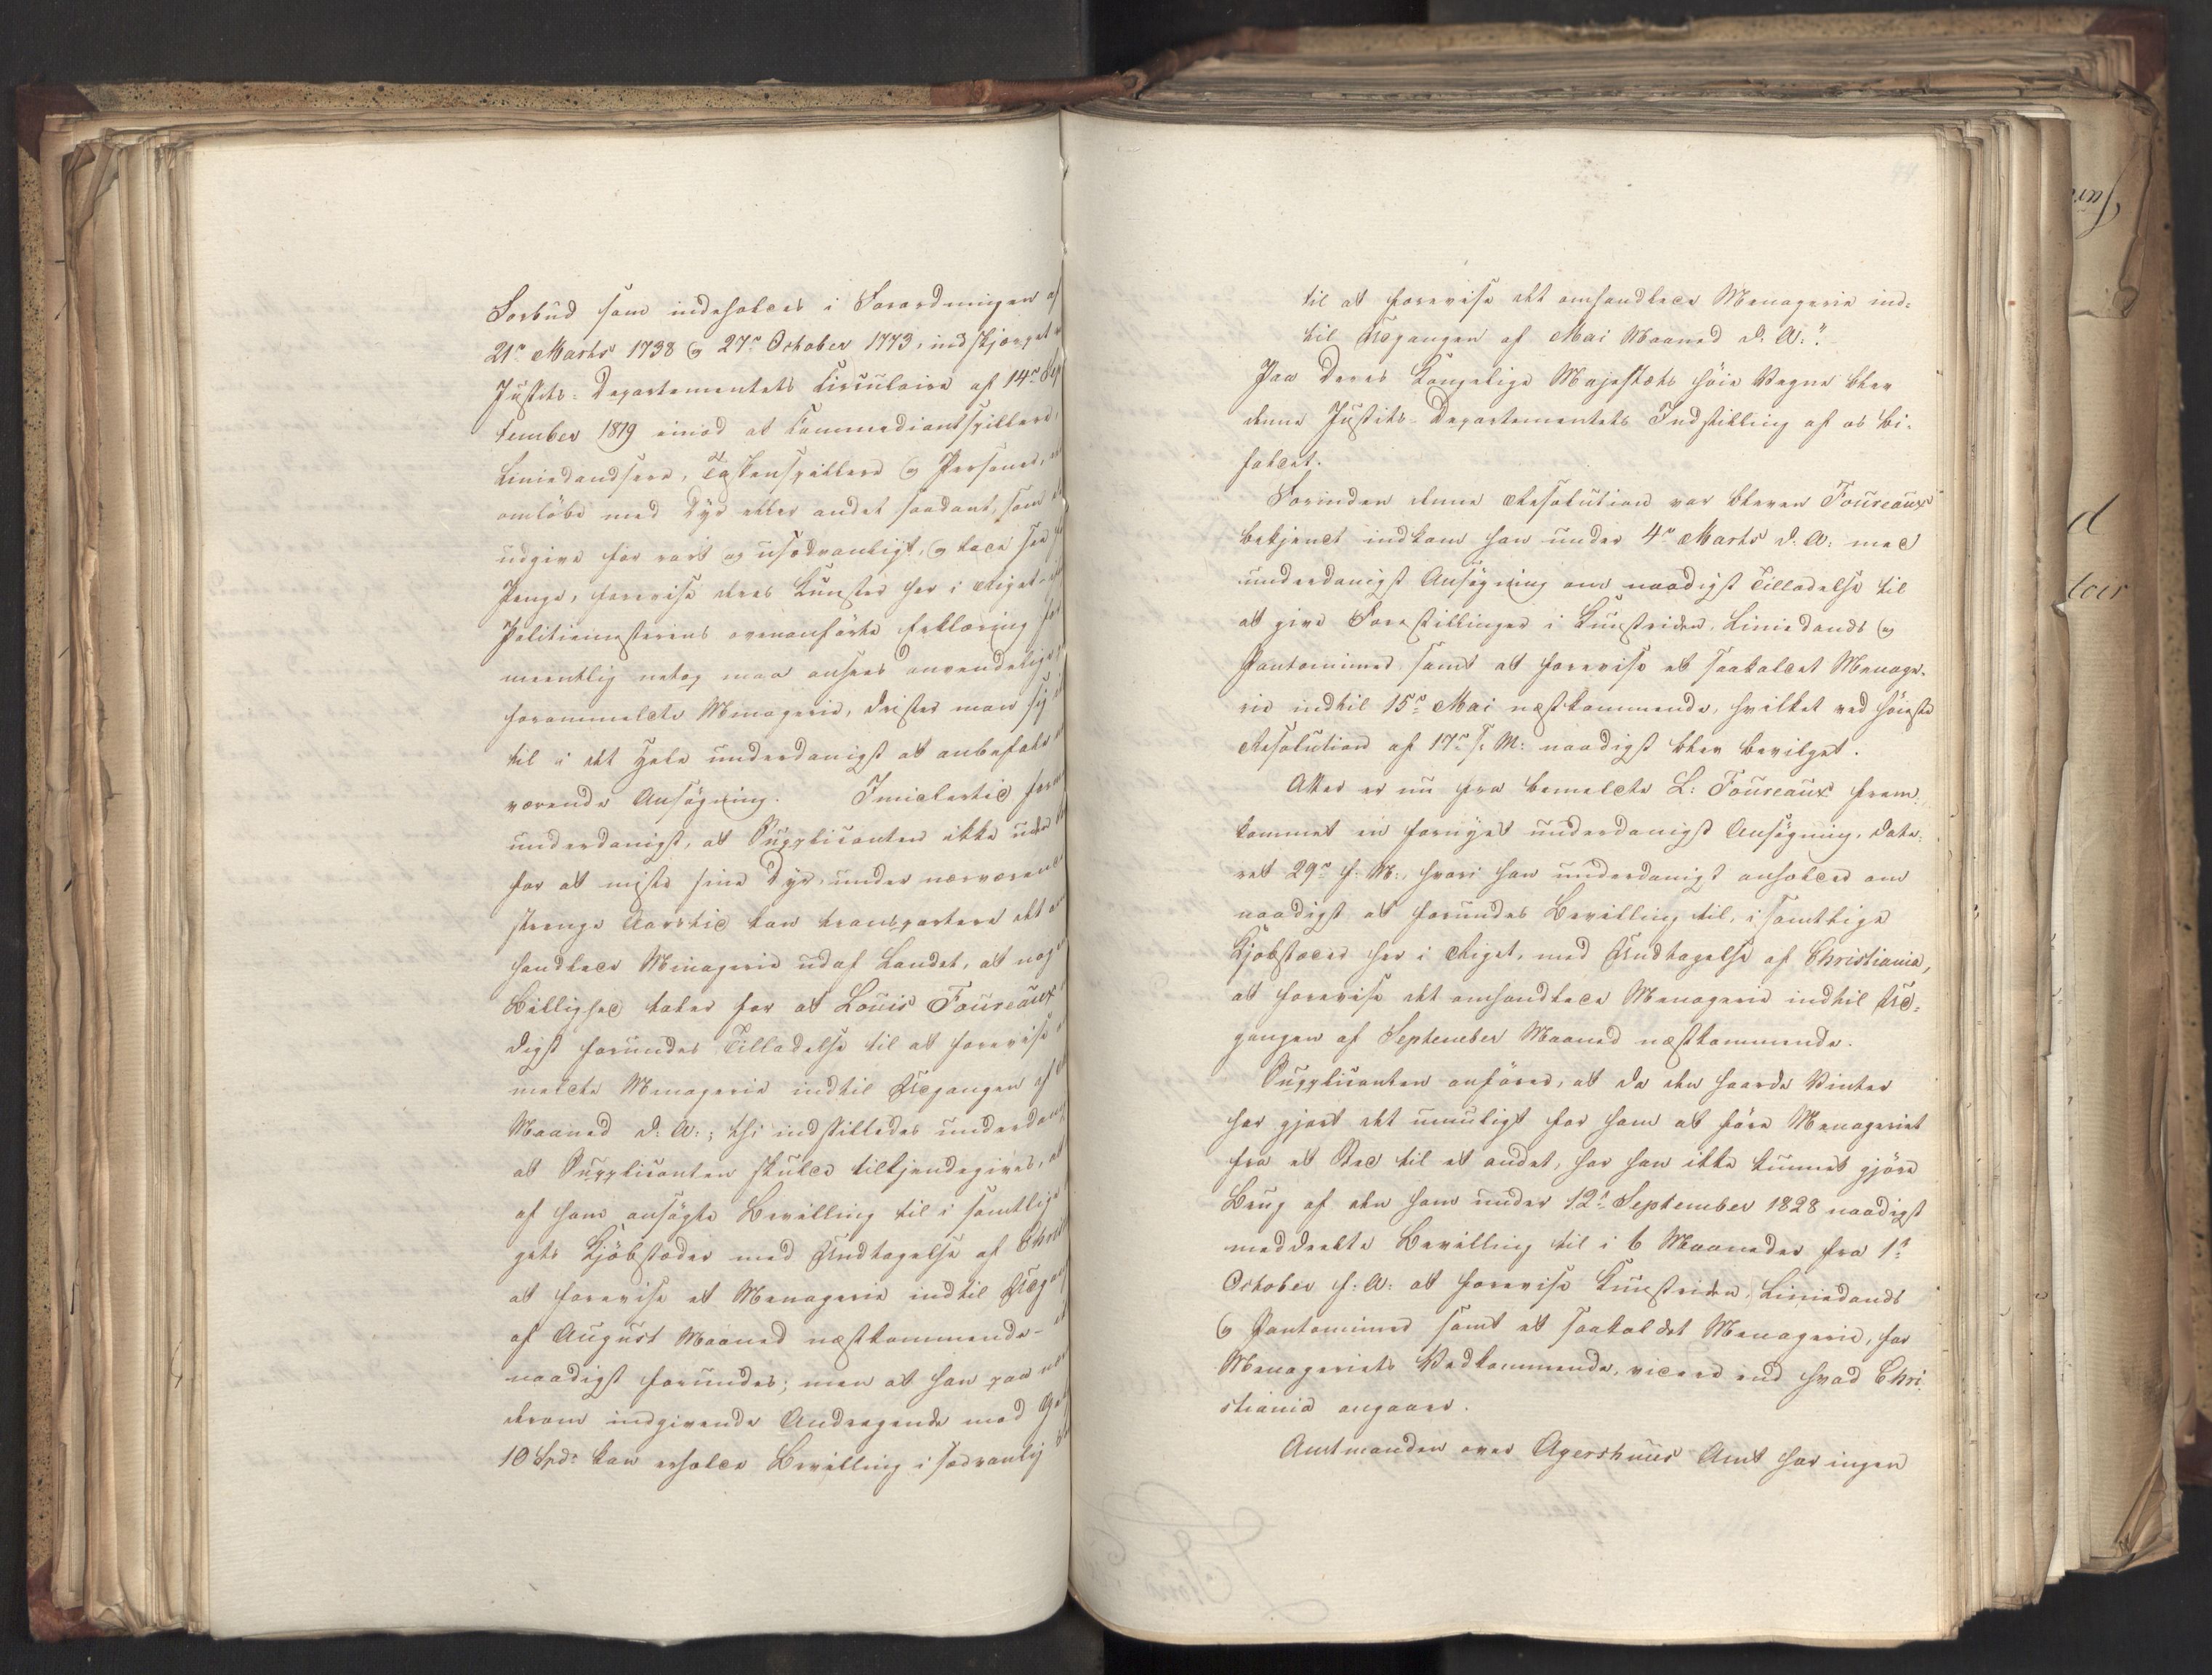 Forbud som indeholdes i Forordningen af
21de Marts 1738 og 27de October 1773, indskjærpet
Justits-Departementets Circulaire af 14de Sep
tember 1819 imod at Commediantspillere,
Liniedandsere, Taskenspillere og Personer,
omløbe med Dyr eller andet saadant, som
udgive for rart og usædvanligt, og lade see
Penge, forevise deres Kunster her i Riget
Politiemesterens ovenanførte Erklæring
meentlig netop maa ansees anvendelige
forommeldte Menagerie, drister man sig
til i det Hele underdanigst at anbefale
værende Ansøgning. Imidlertid
underdanigst, at Supplicanten ikke uden
for at miste sine Dyr, under nærværende
strenge Aarstid kan transportere det
handlede Menagerie ud af Landet, at
Billighed taler for at Louis Foureaux
digst forundes Tilladelse til at forevise
meldte Menagerie indtil Udgangen af
Maaned d: A:; thi indstilledes underdanigst
at Supplicanten skulde tilkjendegives, at
af ham ansøgte Bevilling til i samtlige
gets Kjøbstæder med Undtagelse af Christ
at forevise et Menagerie indtil Udgan
af August Maaned næstkommende
naadigst forundes; men at han paa
derom indgivende Andragende mod
10 Spd: kan erholde Bevilling i sædvanlig
til at forevise det omhandlede Menagerie ind-
til Udgangen af Mai Maaned d: A:."
Paa Deres Kongelige Majestæts høie Vegne blev
denne Justits-Departementets Indstilling af os bi-
faldet.
Forinden denne Resolution var bleven Foureaux
bekjendt indkom han under 4de Marts d: A: med
underdanigst Ansøgning om naadigst Tilladelse til
at give Forestillinger i Kunstriden, Liniedands og
Pantomimer samt at forevise et saakaldet Menage-
rie indtil 15de Mai næstkommende, hvilket ved høieste
Resolution af 17de s: M: naadigst blev bevilget.
Atter er nu fra bemeldte L: Foureaux frem-
kommet en fornyet underdanigst Ansøgning, date-
ret 29de f: M:, hvori han underdanigst anholder om
naadigst at forundes Bevilling til, i samtlige
Kjøbstæder her i Riget, med Undtagelse af Christiania,
at forevise det omhandlede Menagerie indtil Ud-
gangen af September Maaned næstkommende.
Supplicanten anfører, at da den haarde Vinter
har gjort det umuligt for ham at føre Menageriet
fra et Sted til et andet, har han ikke kunnet gjøre
Brug af den ham under 12te September 1828 naadigst
meddeelte Bevilling til i 6 Maaneder fra 1te
October f: A: at forevise Kunstriden, Liniedands
og Pantomimer samt et saakaldet Menagerie, for
Menageriets Vedkommende, videre end hvad Chri-
stiania angaaer.
Amtmanden over Agershuus Amt har ingen